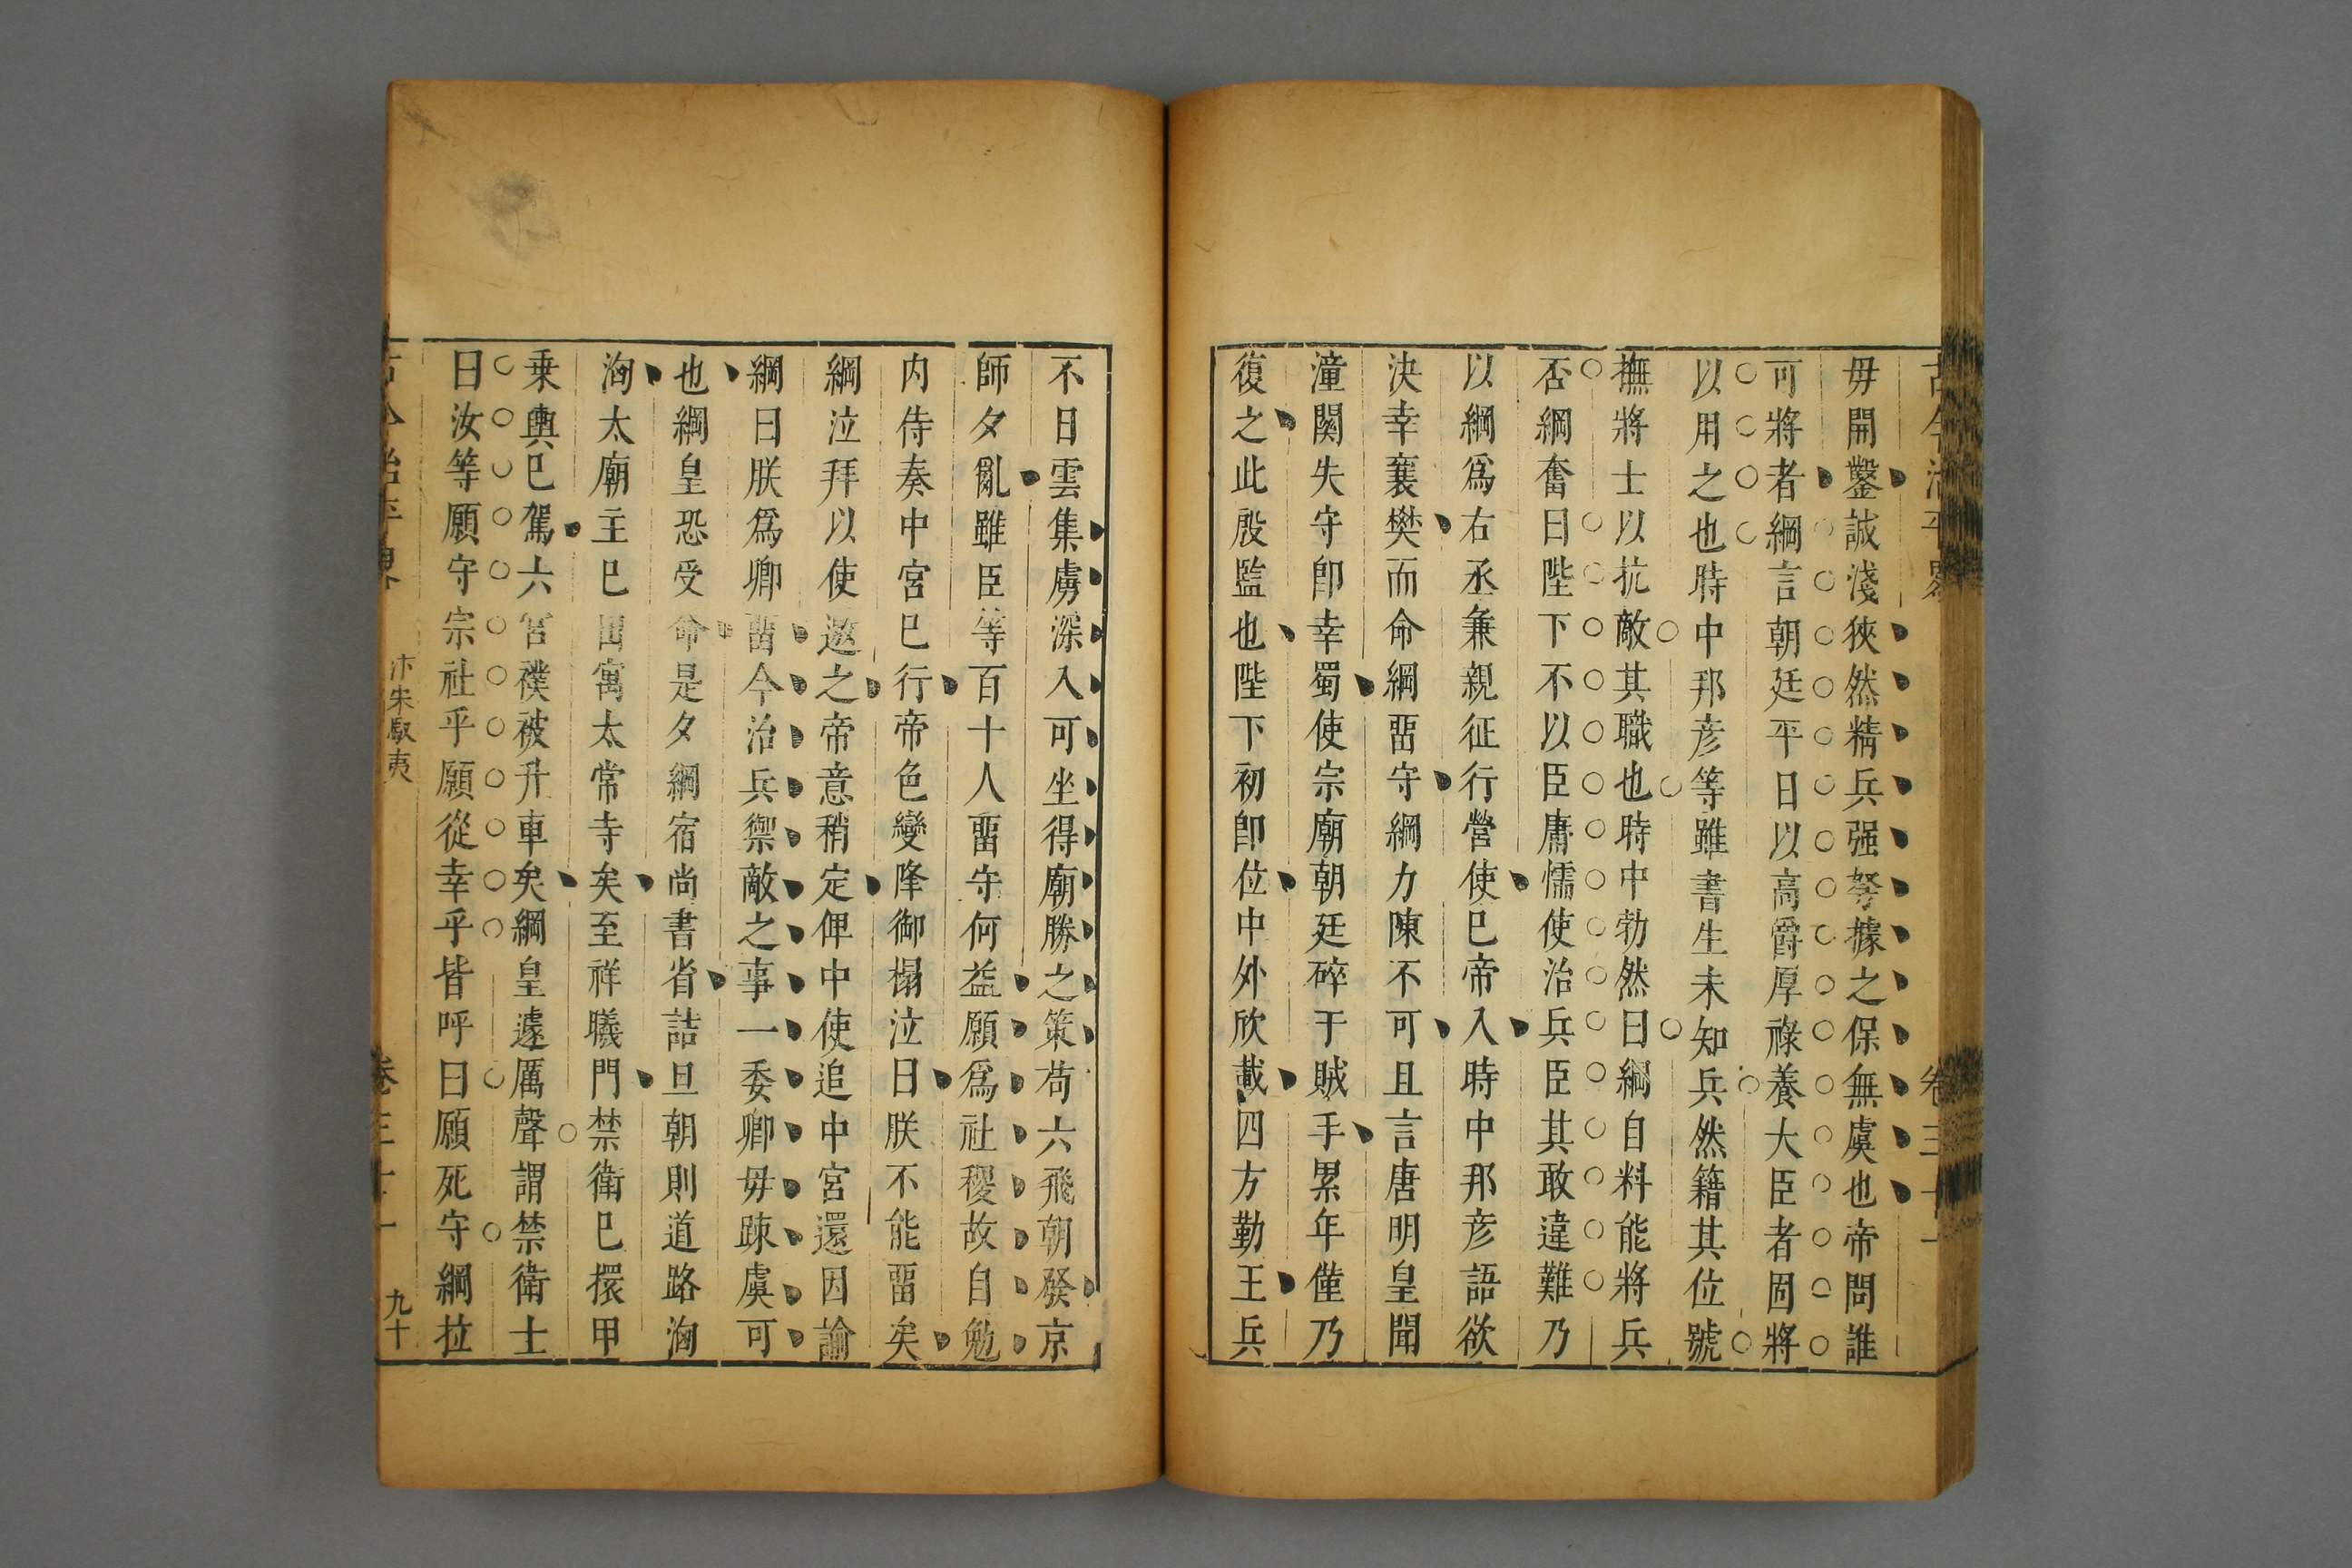 古今治平畧
卷三十一
毋開鑿誠淺狹然精兵强弩據之保無虞也帝問誰
可將者綱言朝廷平日以高爵厚祿養大臣者固將
以用之也時中邦彦等雖書生未知兵然籍其位號
撫將士以抗敵其職也時中勃然曰綱自料能將兵
否綱奮曰陛下不以臣庸懦使治兵臣其敢違難乃
以綱爲右丞兼親征行營使巳帝入時中邦彦語欲
決幸襄樊而命綱畱守綱力陳不可且言唐明皇聞
潼關失守卽幸蜀使宗廟朝廷碎于賊手累年僅乃
復之此殷監也陛下初卽位中外欣戴四方勤王兵
不日雲集虜深入可坐得廟勝之策苟六飛朝發京
師夕亂雖臣等百十人畱守何益願爲社稷故自勉
内侍奏中宮巳行帝色變降御榻泣曰朕不能畱矣
綱泣拜以使邀之帝意稍定俾中使追中宮還因諭
綱曰朕爲卿畱今治兵禦敵之事一委卿毋踈虞可
也綱皇恐受命是夕綱宿尚書省詰旦朝則道路洶
洶太廟主巳出寓太常寺矣至祥曦門禁衛巳擐甲
乗輿巳駕六宮襆被升車矣綱皇遽厲聲謂禁衛士
曰汝等願守宗社乎願從幸乎皆呼曰願死守綱拉
古今治平畧
汴宋馭夷
卷三十一
九十